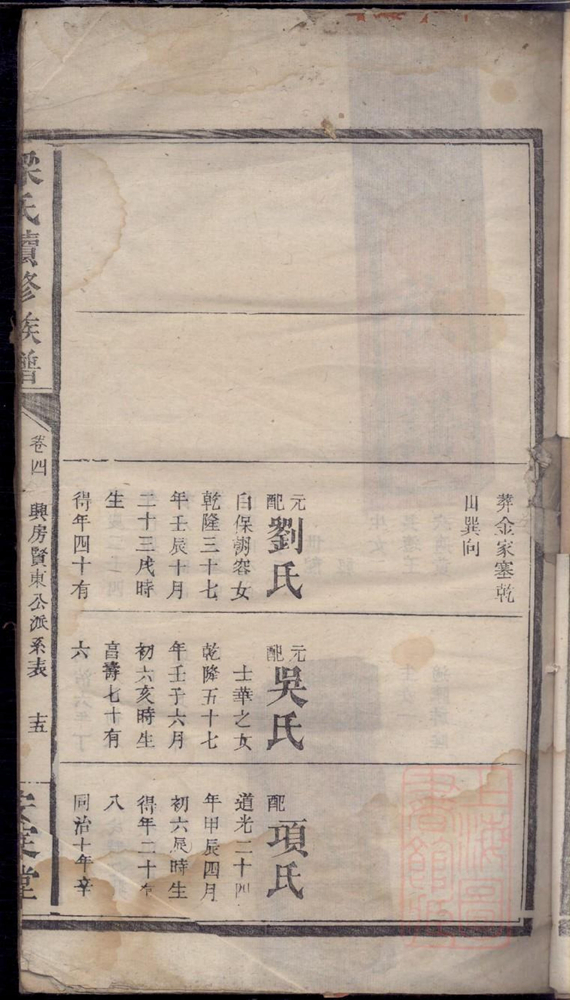 葬金家塞乾
山巽向
元配劉氏
白保謝容女
乾隆三十七
年壬辰十月
二十三戌時
生
得年四十有
元配吳氏
士華之女
乾隆五十七
年壬子六月
初六亥時生
享壽七十有
六
配項氏
道光二十四
年甲辰四月
初六辰時生
得年二十有
八
同治十年辛
梁氏續修族譜
卷四
興房賢東公派系表
十五
安定堂
上海圖書館藏